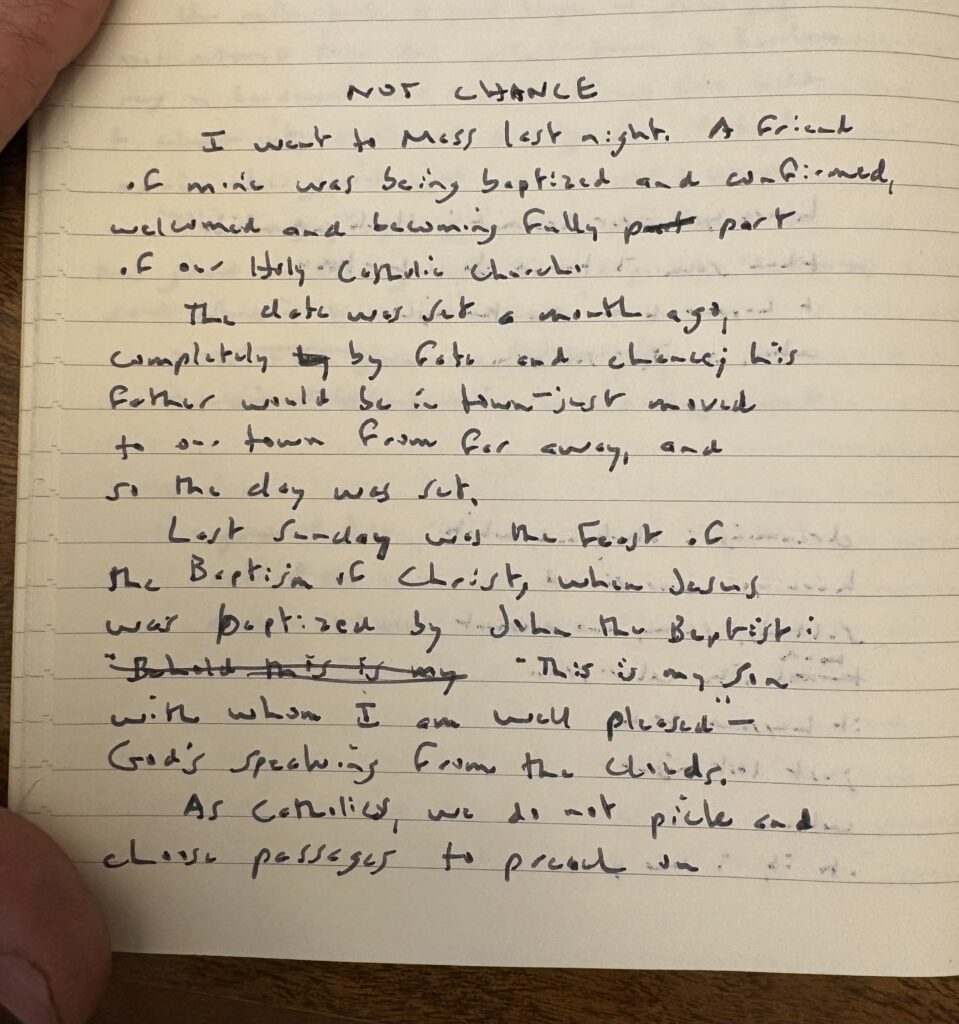 NOT CHANCE
I went to Mass last night. A friend
of mine was being baptized and confirmed,
welcomed and becoming fully part part
of our Holy Catholic Church.
The date was set a month ago,
completely by by fate and chance; his
father would be in town–just moved
to our town from far away, and
so the day was set.
Last Sunday was the Feast of
the Baptism of Christ, when Jesus
was baptized by John the Baptist:
"Behold this is my "This is my son
with whom I am well pleased" –
God's speaking from the clouds.
As Catholics, we do not pick and
choose passages to preach on